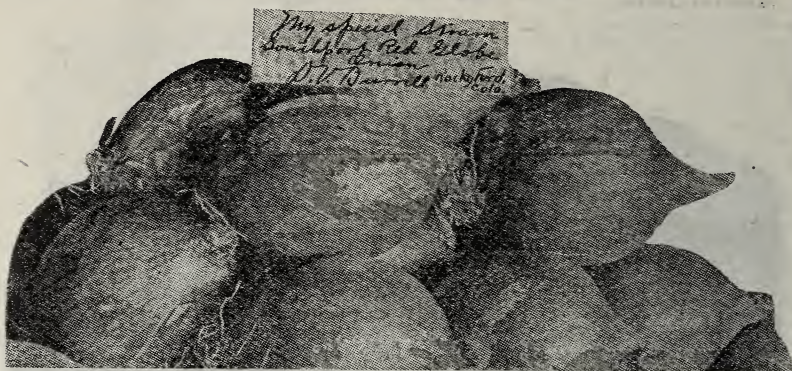 My special Strain
Southport Red Globe
Onion
D. V. Burrell Rocky Ford,
Colo.